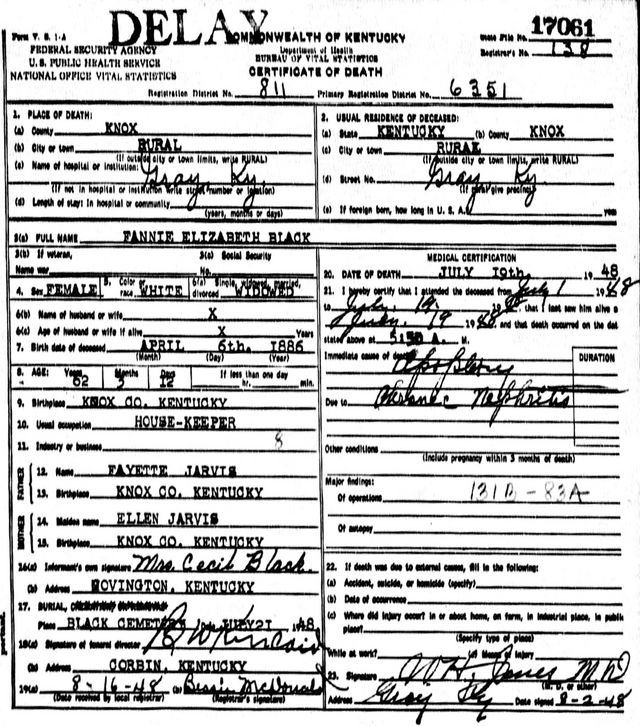 DELAY
17061
Form V. S. 1-A
COMMONWEALTH OF KENTUCKY
State File No.
FEDERAL SECURITY AGENCY
Department of Health
Registrar's No. 138
U. S. PUBLIC HEALTH SERVICE
BUREAU OF VITAL STATISTICS
NATIONAL OFFICE VITAL STATISTICS
CERTIFICATE OF DEATH
Registration District No. 811 Primary Registration District No. 6351
1. PLACE OF DEATH:
(a) County KNOX
(b) City or town RURAL
(If outside city or town limits, write RURAL)
(c) Name of hospital or institution: Gray, Ky.
(If not in hospital or institution write street number or location)
(d) Length of stay: In hospital or community
(years, months or days)
2. USUAL RESIDENCE OF DECEASED:
(a) State KENTUCKY (b) County KNOX
(c) City or town RURAL
(If outside city or town limits, write RURAL)
(d) Street No. Gray, Ky.
(If rural give precinct)
(e) If foreign born, how long in U. S. A. year
3(a) FULL NAME FANNIE ELIZABETH BLACK
3(b) If veteran, 3(c) Social Security
Name war No.
4. Sex FEMALE 5. Color or race WHITE 6(a) Single, widowed, married, divorced WIDOWED
6(b) Name of husband or wife X
6(c) Age of husband or wife if alive X Years
7. Birth date of deceased APRIL 6th. 1886
(Month) (Day) (Year)
8. AGE: Years Months Days If less than one day
62 3 12 hr. min.
9. Birthplace KNOX CO. KENTUCKY
10. Usual occupation HOUSE-KEEPER
11. Industry or business 8
FATHER
12. Name FAYETTE JARVIS
13. Birthplace KNOX CO. KENTUCKY
MOTHER
14. Maiden name ELLEN JARVIS
15. Birthplace KNOX CO. KENTUCKY
16(a) Informant's own signature Mrs. Cecil Black.
(b) Address COVINGTON, KENTUCKY
17. BURIAL,
Place BLACK CEMETERY Date JULY 21 1948
18(a) Signature of funeral director R W Kincaid
(b) Address CORBIN, KENTUCKY
19(a) 8-16-48 (b) Bessie McDonald
(Date received by local registrar) (Registrar's signature)
MEDICAL CERTIFICATION
20. DATE OF DEATH JULY 19th. 1948
21. I hereby certify that I attended the deceased from July 1 1948
to July. 19 1948, that I last saw him alive on
July. 19 1948 and that death occurred on the date
stated above at 5:50 A. M.
Immediate cause of death DURATION
Apoplexy
Due to Chronic Nephritis
Other conditions
(Include pregnancy within 3 months of death)
Major findings:
Of operations 131B-83A
Of autopsy
22. If death was due to external causes, fill in the following:
(a) Accident, suicide, or homicide (specify)
(b) Date of occurrence
(c) Where did injury occur? In or about home, on farm, in industrial place, in public
place?
(Specify type of place)
While at work? (d) Means of injury
23. Signature W. H. Jones M.D
(M. D. or other)
Address Gray Ky Date signed 8-2-48